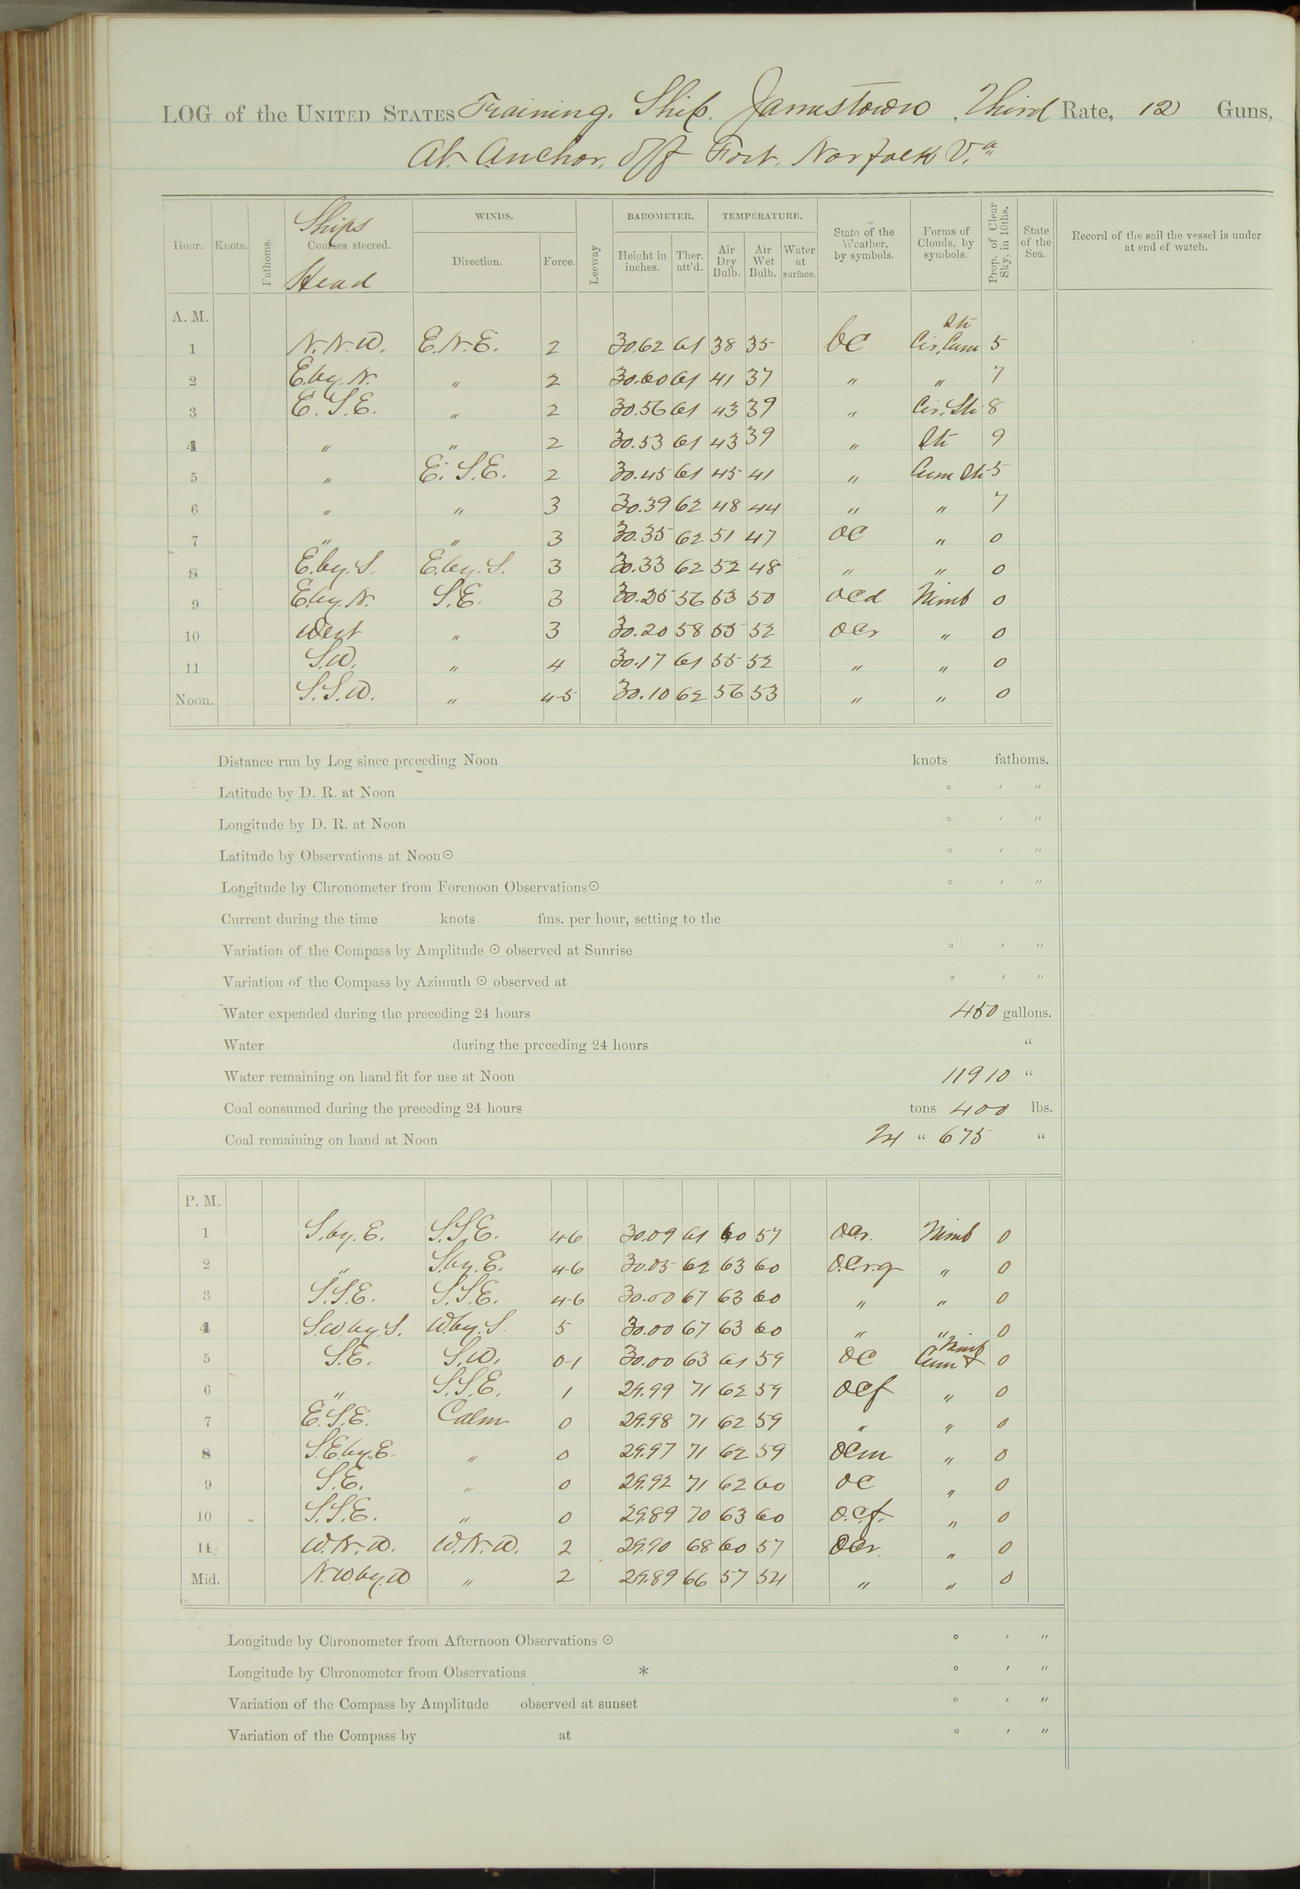 LOG of the UNITED STATES Training Ship. Jamestown, Third Rate, 12 Guns,
At Anchor, Off Fort, Norfolk Va
Hour. Knots. Fathoms. Ships Courses steered. Head WINDS. Direction. Force. Leeway BAROMETER. Height in inches. Ther. att'd. TEMPERATURE. Air Dry Bulb. Air Wet Bulb. Water at surface. State of the Weather, by symbols. Forms of Clouds, by symbols. Prop. of Clear Sky, in 10ths. State of the Sea. Record of the sail the vessel is under at end of watch.
A. M.
1 N.N.W. E.N.E. 2 30.62 61 38 35 bc Cir. Cum Str 5
2 E.by.N. " 2 30.60 61 41 37 " " 7
3 E.S.E. " 2 30.56 61 43 39 " Cir. Str 8
4 " " 2 30.53 61 43 39 " Str 9
5 " E.S.E. 2 30.45 61 45 41 " Cum Str 5
6 " " 3 30.39 62 48 44 " " 7
7 " " 3 30.35 62 51 47 oc " 0
8 E.by.S. E.by.S. 3 30.33 62 52 48 " " 0
9 E.by.N. S.E. 3 30.25 56 53 50 ocd Nimb 0
10 West " 3 30.20 58 55 52 ocr " 0
11 S.W. " 4 30.17 61 55 52 " " 0
Noon. S.S.W. " 4-5 30.10 62 56 53 " " 0
Distance run by Log since preceding Noon knots fathoms.
Latitude by D. R. at Noon ° ' "
Longitude by D. R. at Noon ° ' "
Latitude by Observations at Noon ☉ ° ' "
Longitude by Chronometer from Forenoon Observations ☉ ° ' "
Current during the time knots fms. per hour, setting to the
Variation of the Compass by Amplitude ☉ observed at Sunrise ° ' "
Variation of the Compass by Azimuth ☉ observed at ° ' "
Water expended during the preceding 24 hours 450 gallons.
Water during the preceding 24 hours "
Water remaining on hand fit for use at Noon 11910 "
Coal consumed during the preceding 24 hours tons 400 lbs.
Coal remaining on hand at Noon 24 " 675 "
P. M.
1 S.by.E. S.S.E. 4-6 30.09 61 60 57 ocr. Nimb 0
2 " S.by.E. 4-6 30.05 62 63 60 ocrq " 0
3 S.S.E. S.S.E. 4-6 30.00 67 63 60 " " 0
4 S.W.by.S. W.by.S. 5 30.00 67 63 60 " " 0
5 S.E. S.W. 0-1 30.00 63 61 59 oc Cum & Nimb 0
6 " S.S.E. 1 29.99 71 62 59 ocf " 0
7 E.S.E. Calm 0 29.98 71 62 59 " " 0
8 S.E.by.E. " 0 29.97 71 62 59 ocm " 0
9 S.E. " 0 29.92 71 62 60 oc " 0
10 S.S.E. " 0 29.89 70 63 60 o.c.f. " 0
11 W.N.W. W.N.W. 2 29.90 68 60 57 ocr. " 0
Mid. N.W.by.W " 2 29.89 66 57 54 " " 0
Longitude by Chronometer from Afternoon Observations ☉ ° ' "
Longitude by Chronometer from Observations * ° ' "
Variation of the Compass by Amplitude observed at sunset ° ' "
Variation of the Compass by at ° ' "